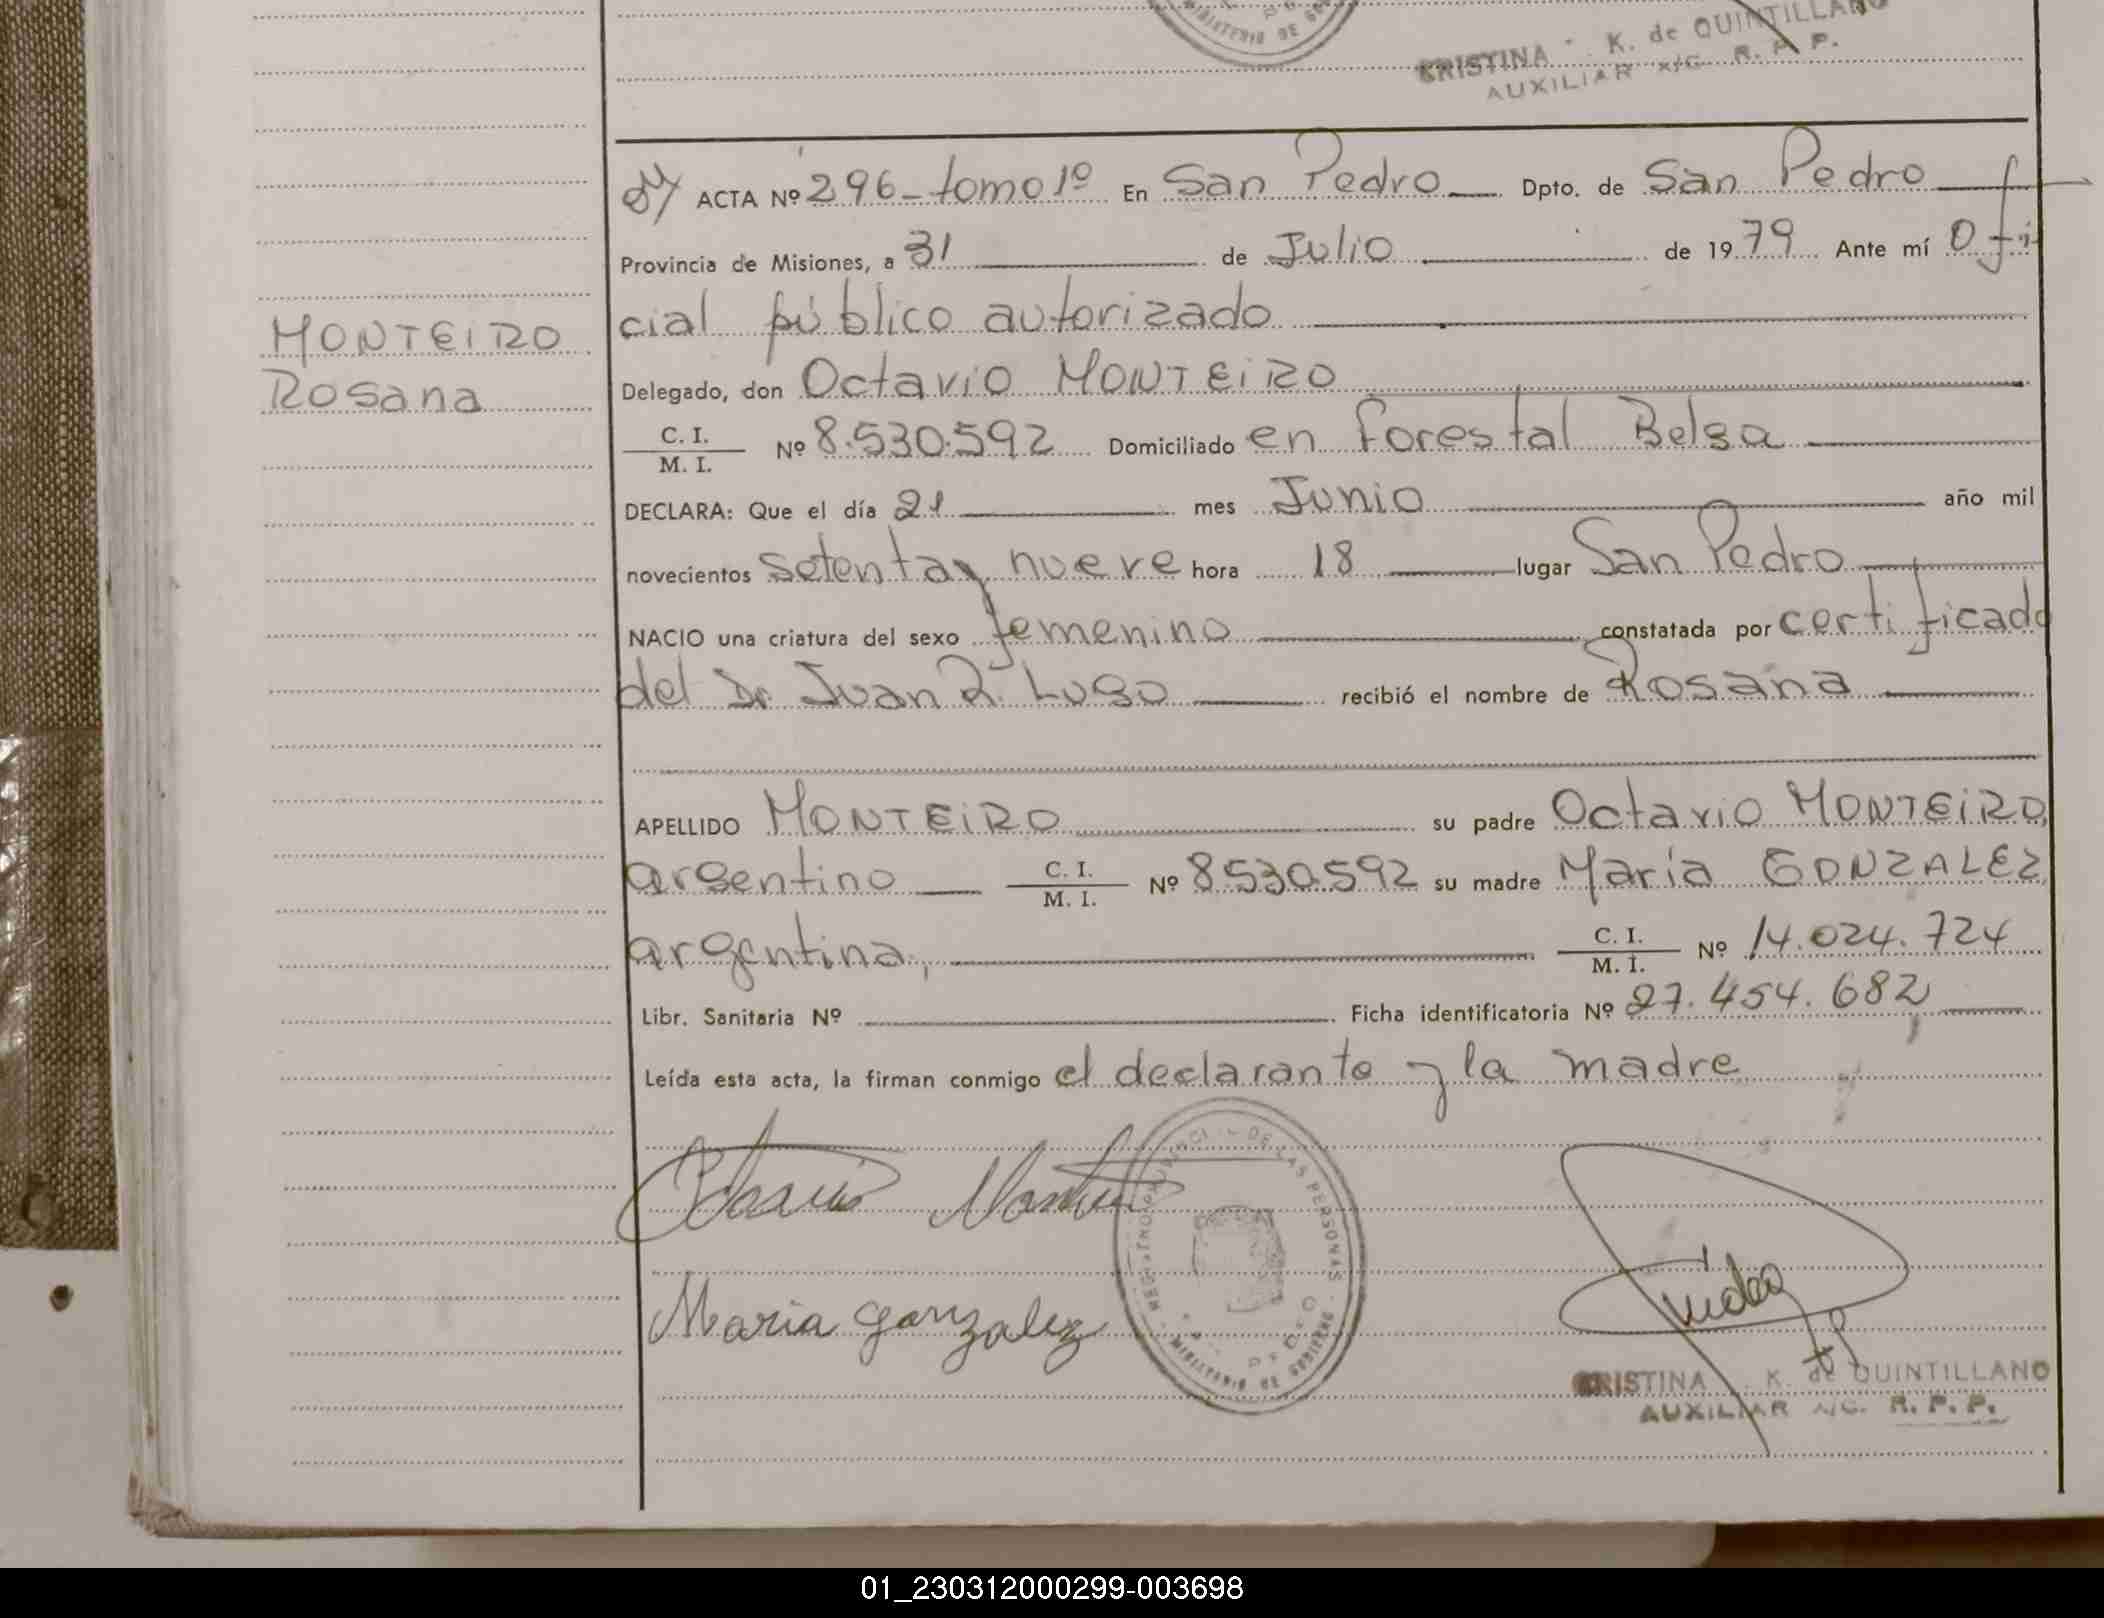 MINISTERIO DE
CRISTINA K. de QUINTILLANO
AUXILIAR A/C. R. P. P.
ACTA Nº 296 - tomo 1º En San Pedro Dpto. de San Pedro
Provincia de Misiones, a 31 de Julio de 1979 Ante mí Ofi-
cial público autorizado
MONTEIRO
Rosana
Delegado, don Octavio MONTEIRO
C. I.
M. I. Nº 8.530.592 Domiciliado en Forestal Belga
DECLARA: Que el día 21 mes Junio año mil
novecientos setenta y nueve hora 18 lugar San Pedro
NACIO una criatura del sexo femenino constatada por certificado
del Dr Juan R. Lugo recibió el nombre de Rosana
APELLIDO MONTEIRO su padre Octavio MONTEIRO,
argentino C. I. M. I. Nº 8530.592 su madre María GONZALEZ,
argentina, C. I. M. I. Nº 14.024.724
Libr. Sanitaria Nº Ficha identificatoria Nº 27.454.682
Leída esta acta, la firman conmigo el declarante y la madre
Maria gonzalez
DE LAS PERSONAS
CRISTINA K. de QUINTILLANO
AUXILIAR A/C. R. P. P.
01_230312000299-003698